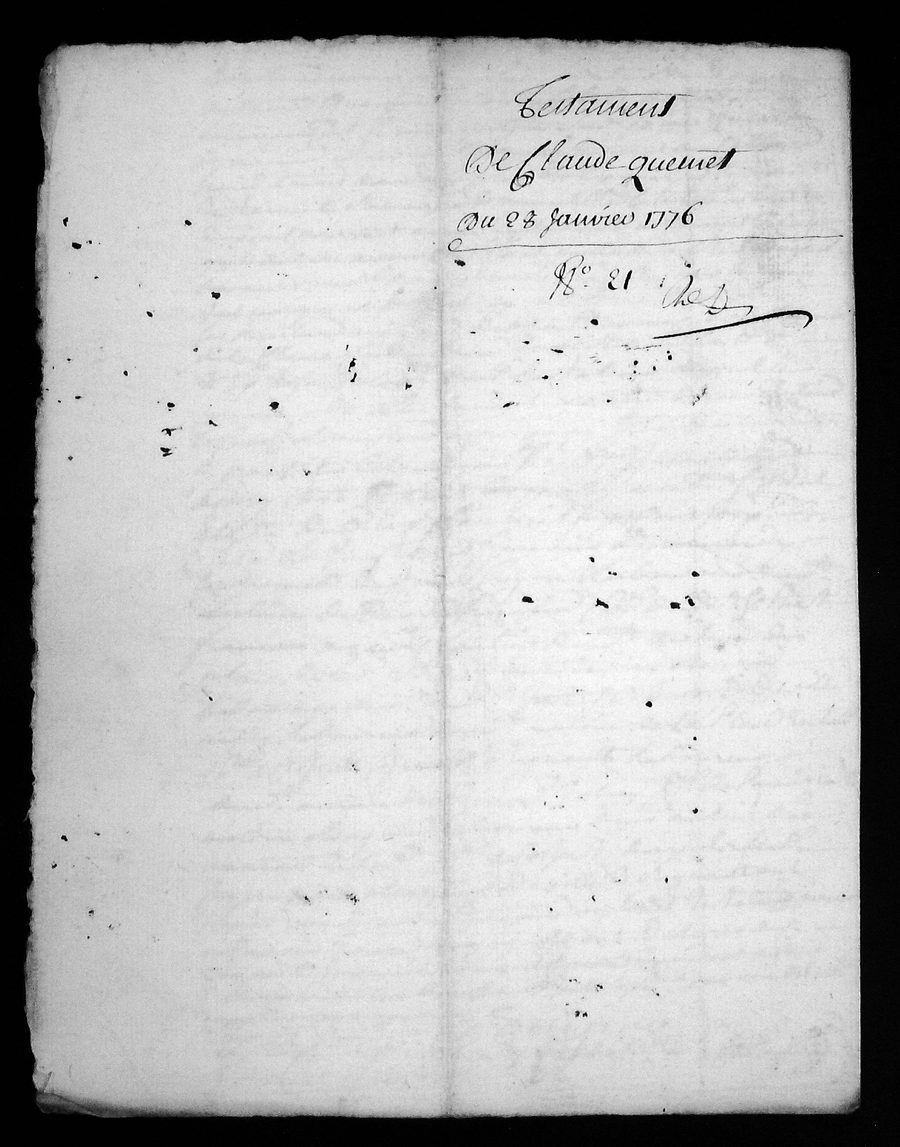 Testament
De Claude quemet
Du 28 Janvier 1776
No. 21